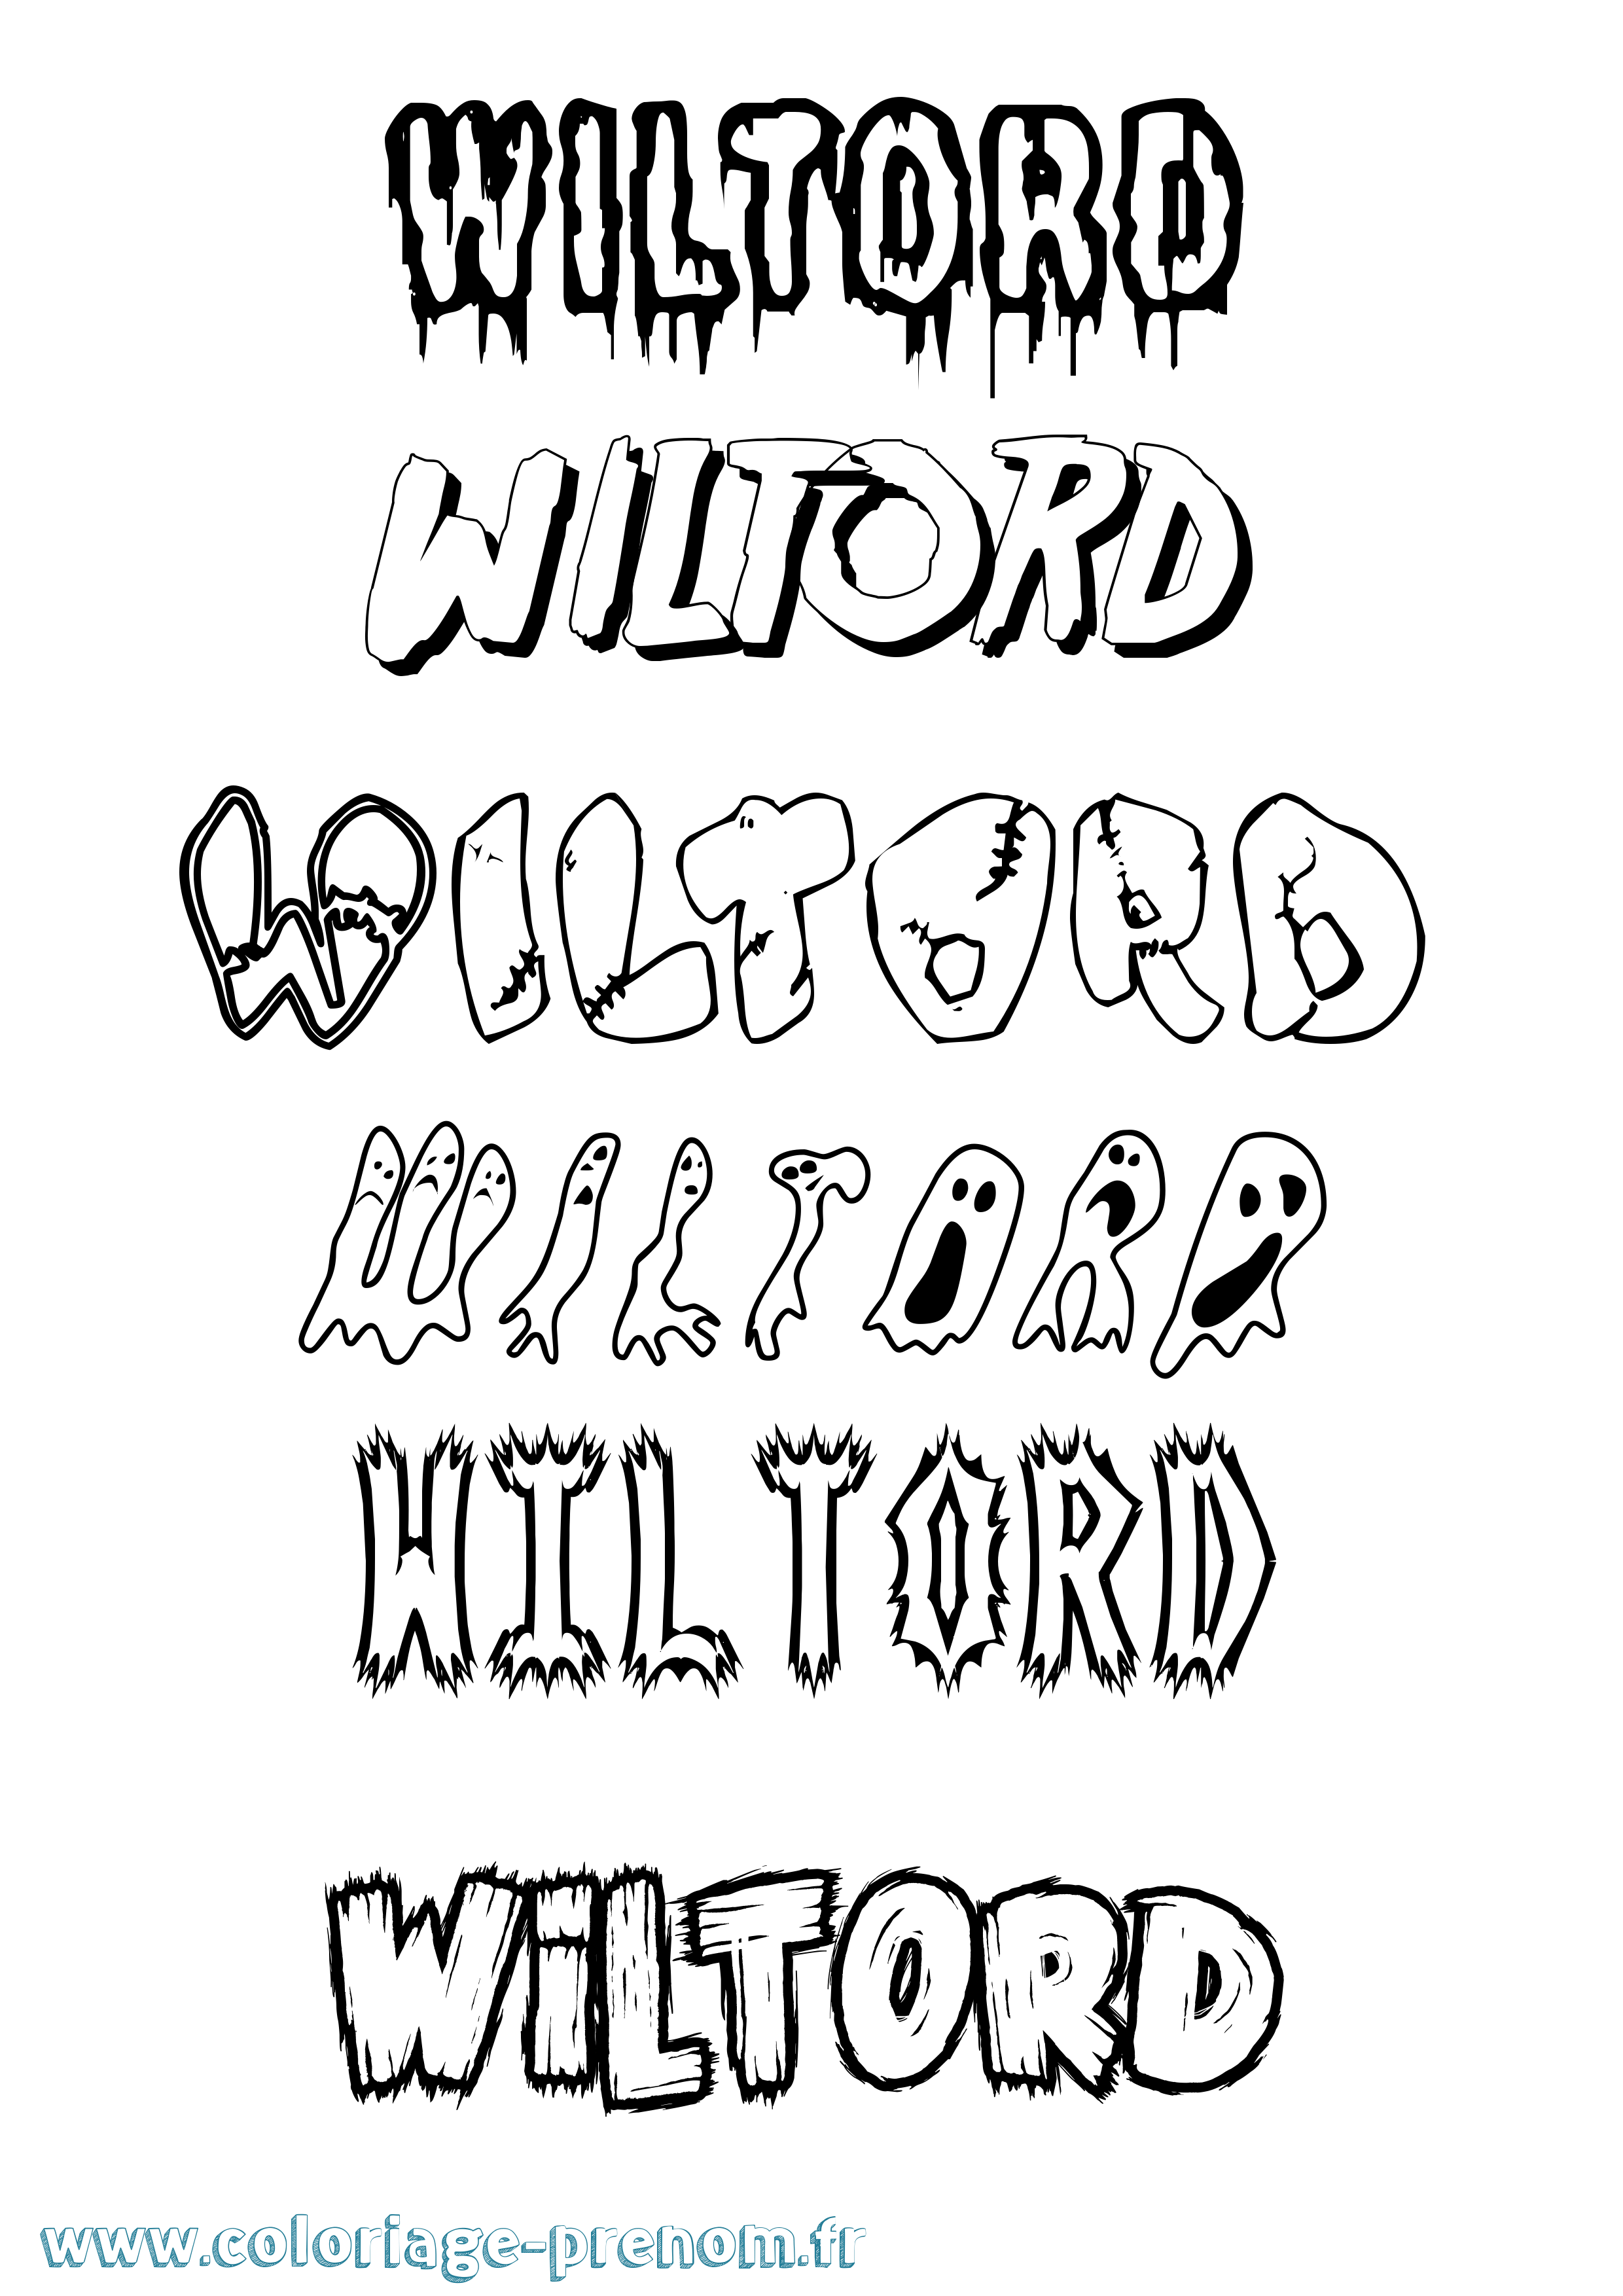 WILTORD
WILTORD
WILTORD
WILTORD
WILTORD
WILTORD
www.coloriage-prenom.fr